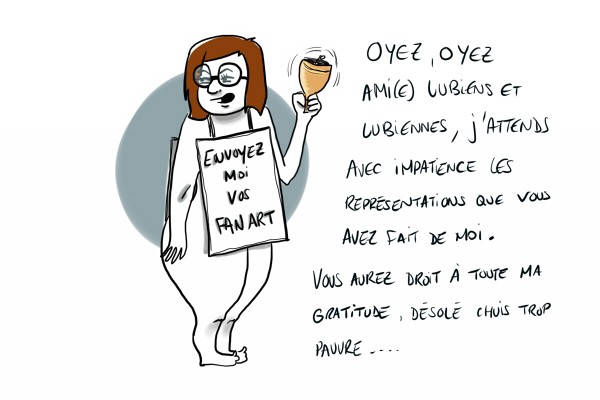 ENVOYEZ
MOI
VOS
FAN ART
OYEZ, OYEZ
AMI(E) LUBIENS ET
LUBIENNES, J'ATTENDS
AVEC IMPATIENCE LES
REPRÉSENTATIONS QUE VOUS
AVEZ FAIT DE MOI.
VOUS AUREZ DROIT À TOUTE MA
GRATITUDE, DÉSOLÉ CHUIS TROP
PAUVRE ....